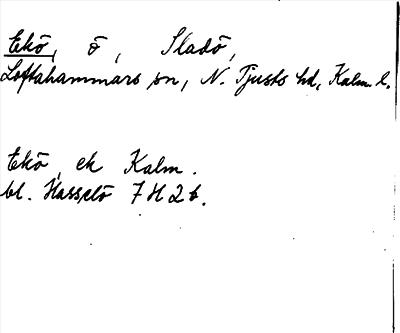 Ekö, ö, Sladö,
Loftahammars sn, N. Tjusts hd, Kalm. l.
Ekö, ek Kalm.
bl. Hasselö 7H2b.